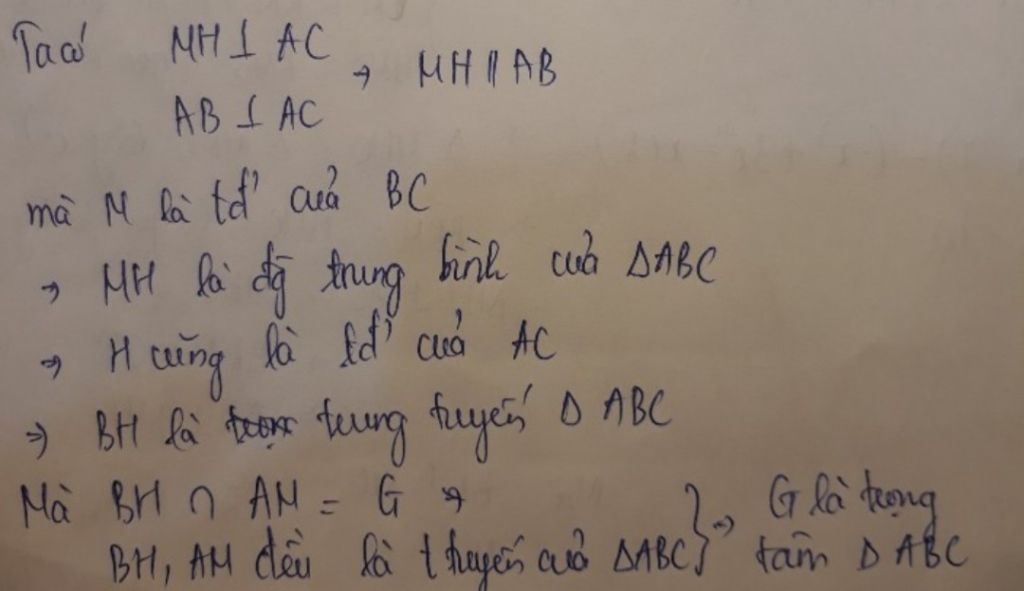 Ta có MH ⊥ AC
→ MH ∥ AB
AB ⊥ AC
mà M là tđ' của BC
→ MH là đg trung bình của ΔABC
→ H cũng là tđ' của AC
→ BH là trung tuyến Δ ABC
Mà BH ∩ AM = G →
BH, AM đều là t tuyến của ΔABC } → G là trọng
tâm Δ ABC